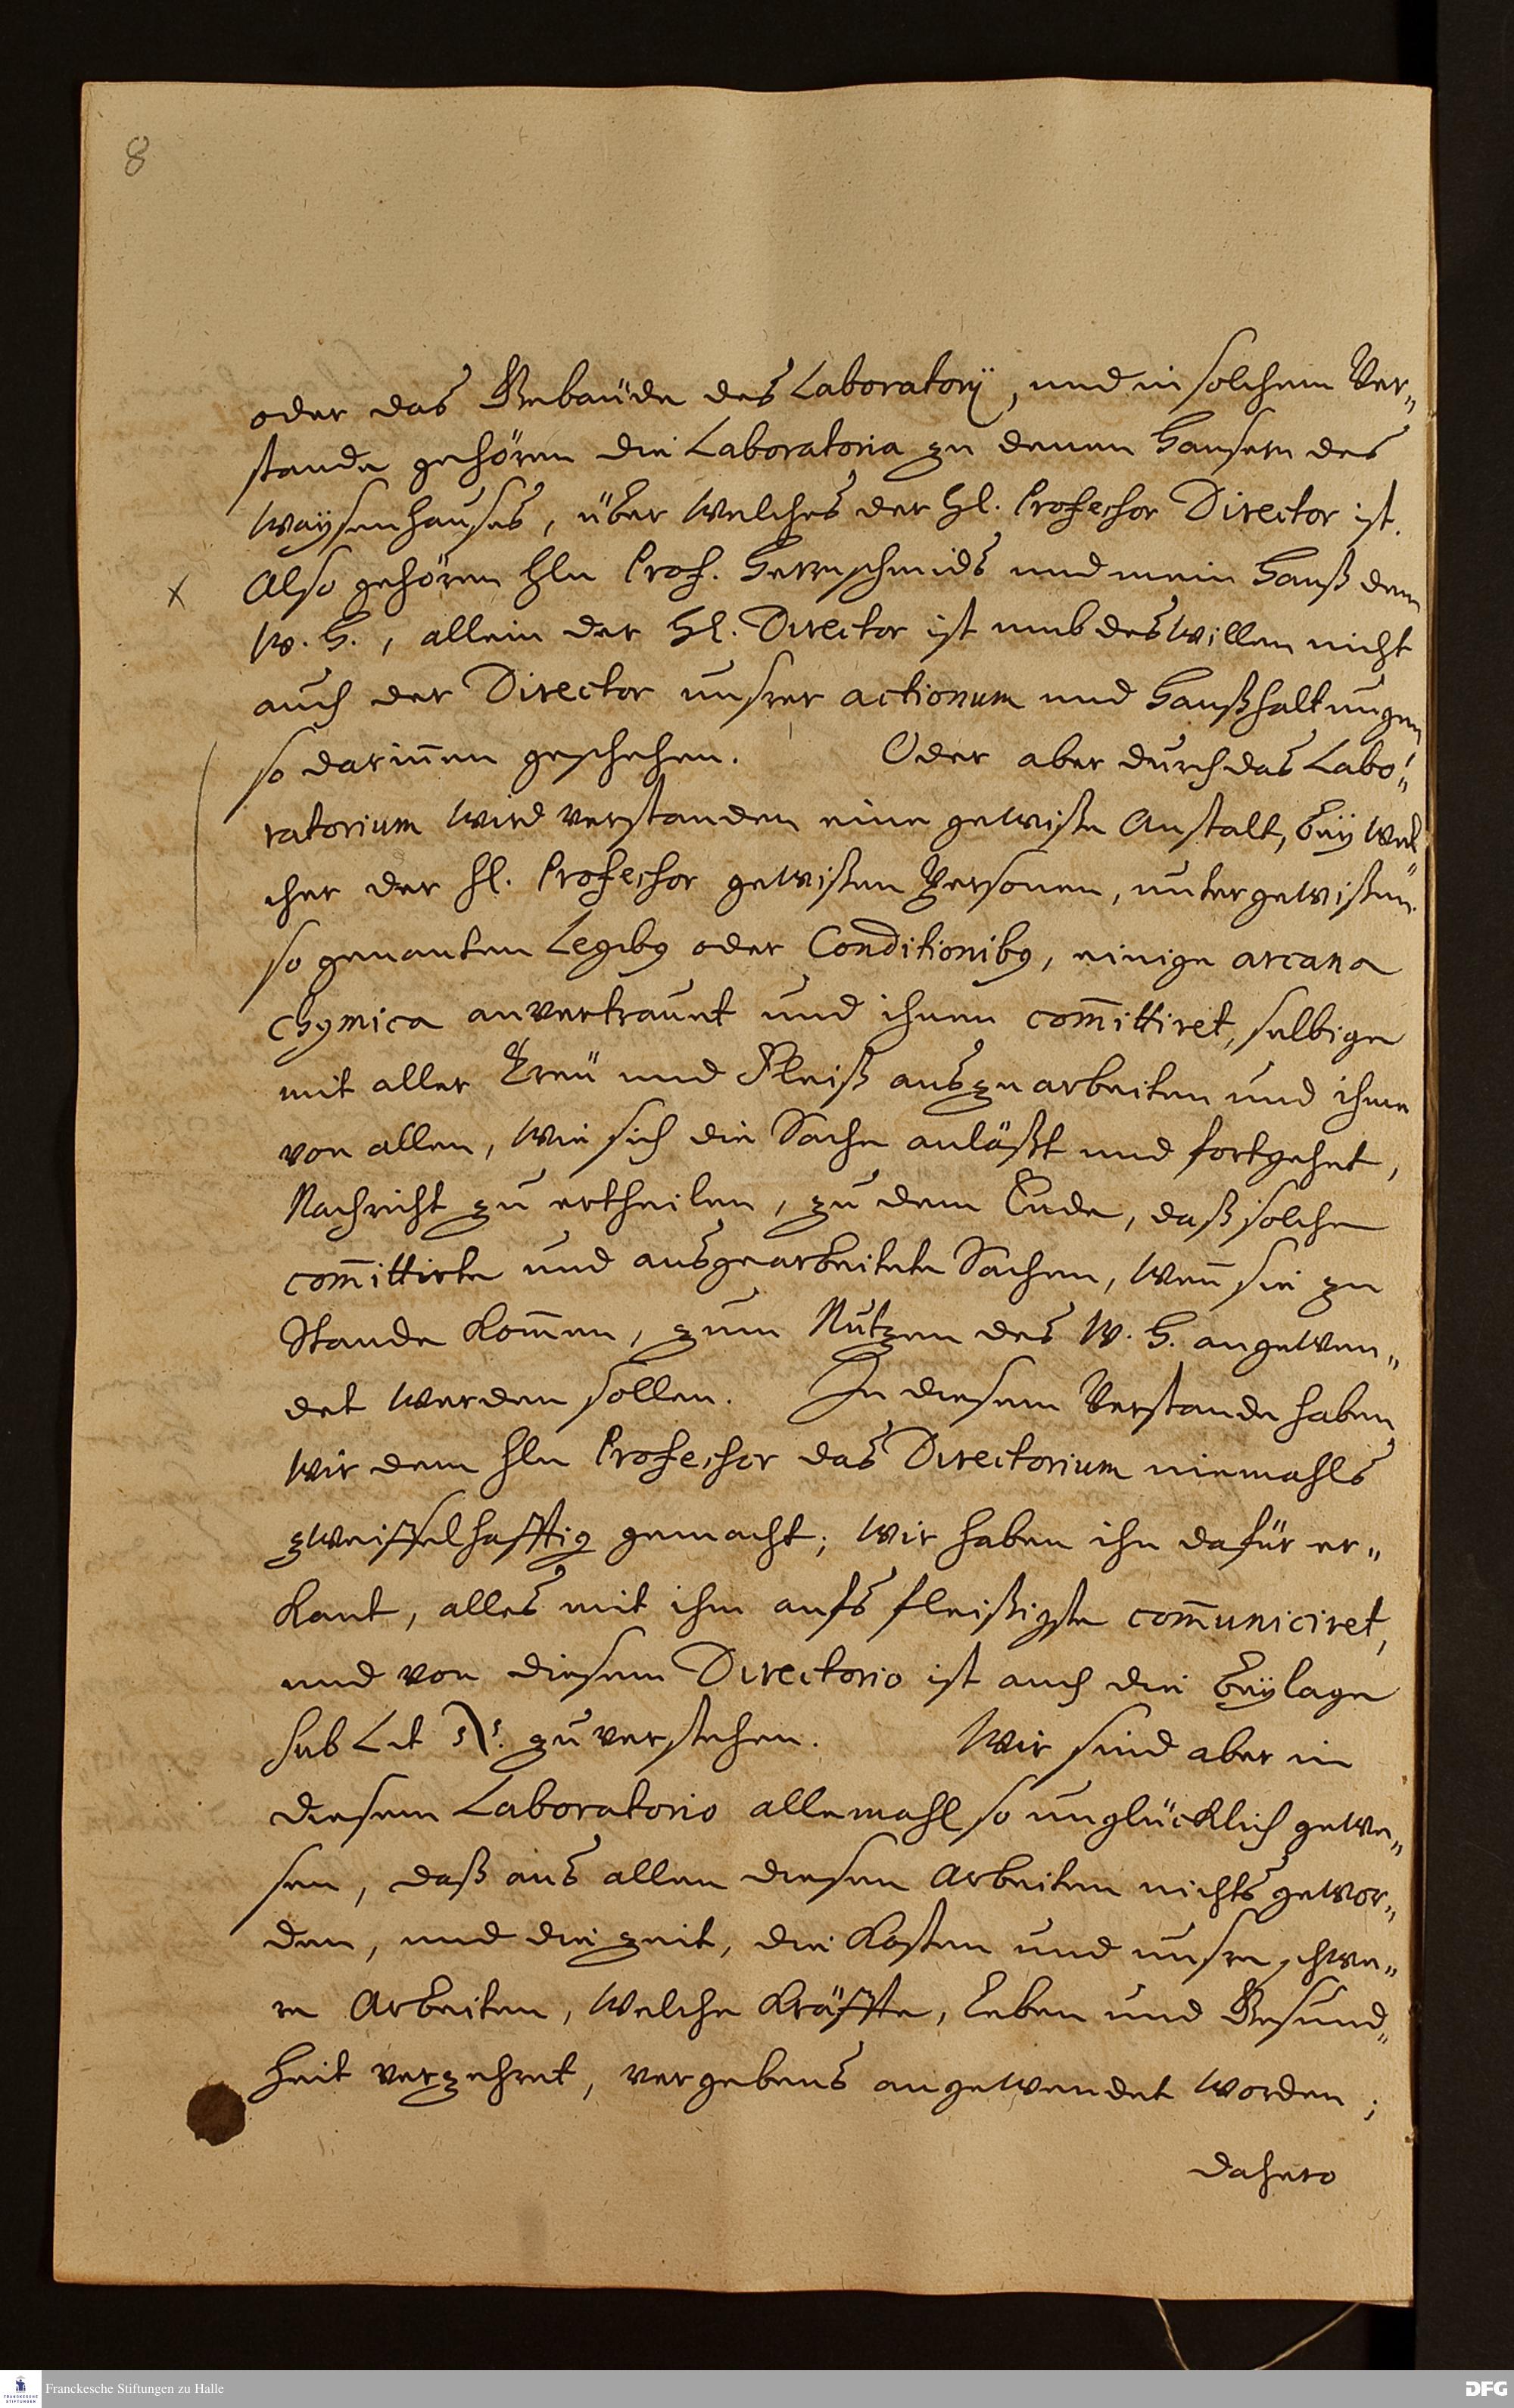 8
oder das Gebäude des Laboratorij, und in solchem Ver„
stande gehören die Laboratoria zu denen Hausern des
Waysenhauses, über welches der Hl. Professor Director ist.
x Also gehören Hln Prof. Herrnschmids und mein Hauß dem
W. H., allein der Hl. Director ist umb deswillen nicht
auch der Director unsrer actionum und Haußhaltungen
so dariñen geschehen. Oder aber durch das Labo„
ratorium wird verstanden eine gewiße Anstalt, bey wel„
cher der Hl. Professor gewißen Personen, unter gewißen
so genanten Legib9 oder Conditionib9, einige arcana
chymica anvertrauet und ihnen com̄ittiret, selbige
mit aller Treü und Fleiß auszuarbeiten und ihme
von allen, wie sich die Sache anläßt und fortgehet,
Nachricht zu ertheilen, zu dem Ende, daß solche
com̄ittirte und ausgearbeitete Sachen, weñ sie zu
Stande kom̄en, zum Nutzen des W. H. angewen„
det werden sollen. In diesem Verstande haben
wir dem Hln Professor das Directorium niemahls
zweiffelhafftig gemacht; wir haben ihn dafür er„
kant, alles mit ihm aufs fleißigste com̄uniciret,
und von diesem Directorio ist auch die Beylage
sub Lit zu verstehen. Wir sind aber in
diesem Laboratorio allemahl so unglücklich gewe„
sen, daß aus allen diesen Arbeiten nichts gewor„
den, und die Zeit, die Kosten und unsre schwe„
re Arbeiten, welche Kräffte, Leben und Gesund„
heit verzehret, vergebens angewendet worden;
dahero
Franckesche Stiftungen zu Halle
DFG